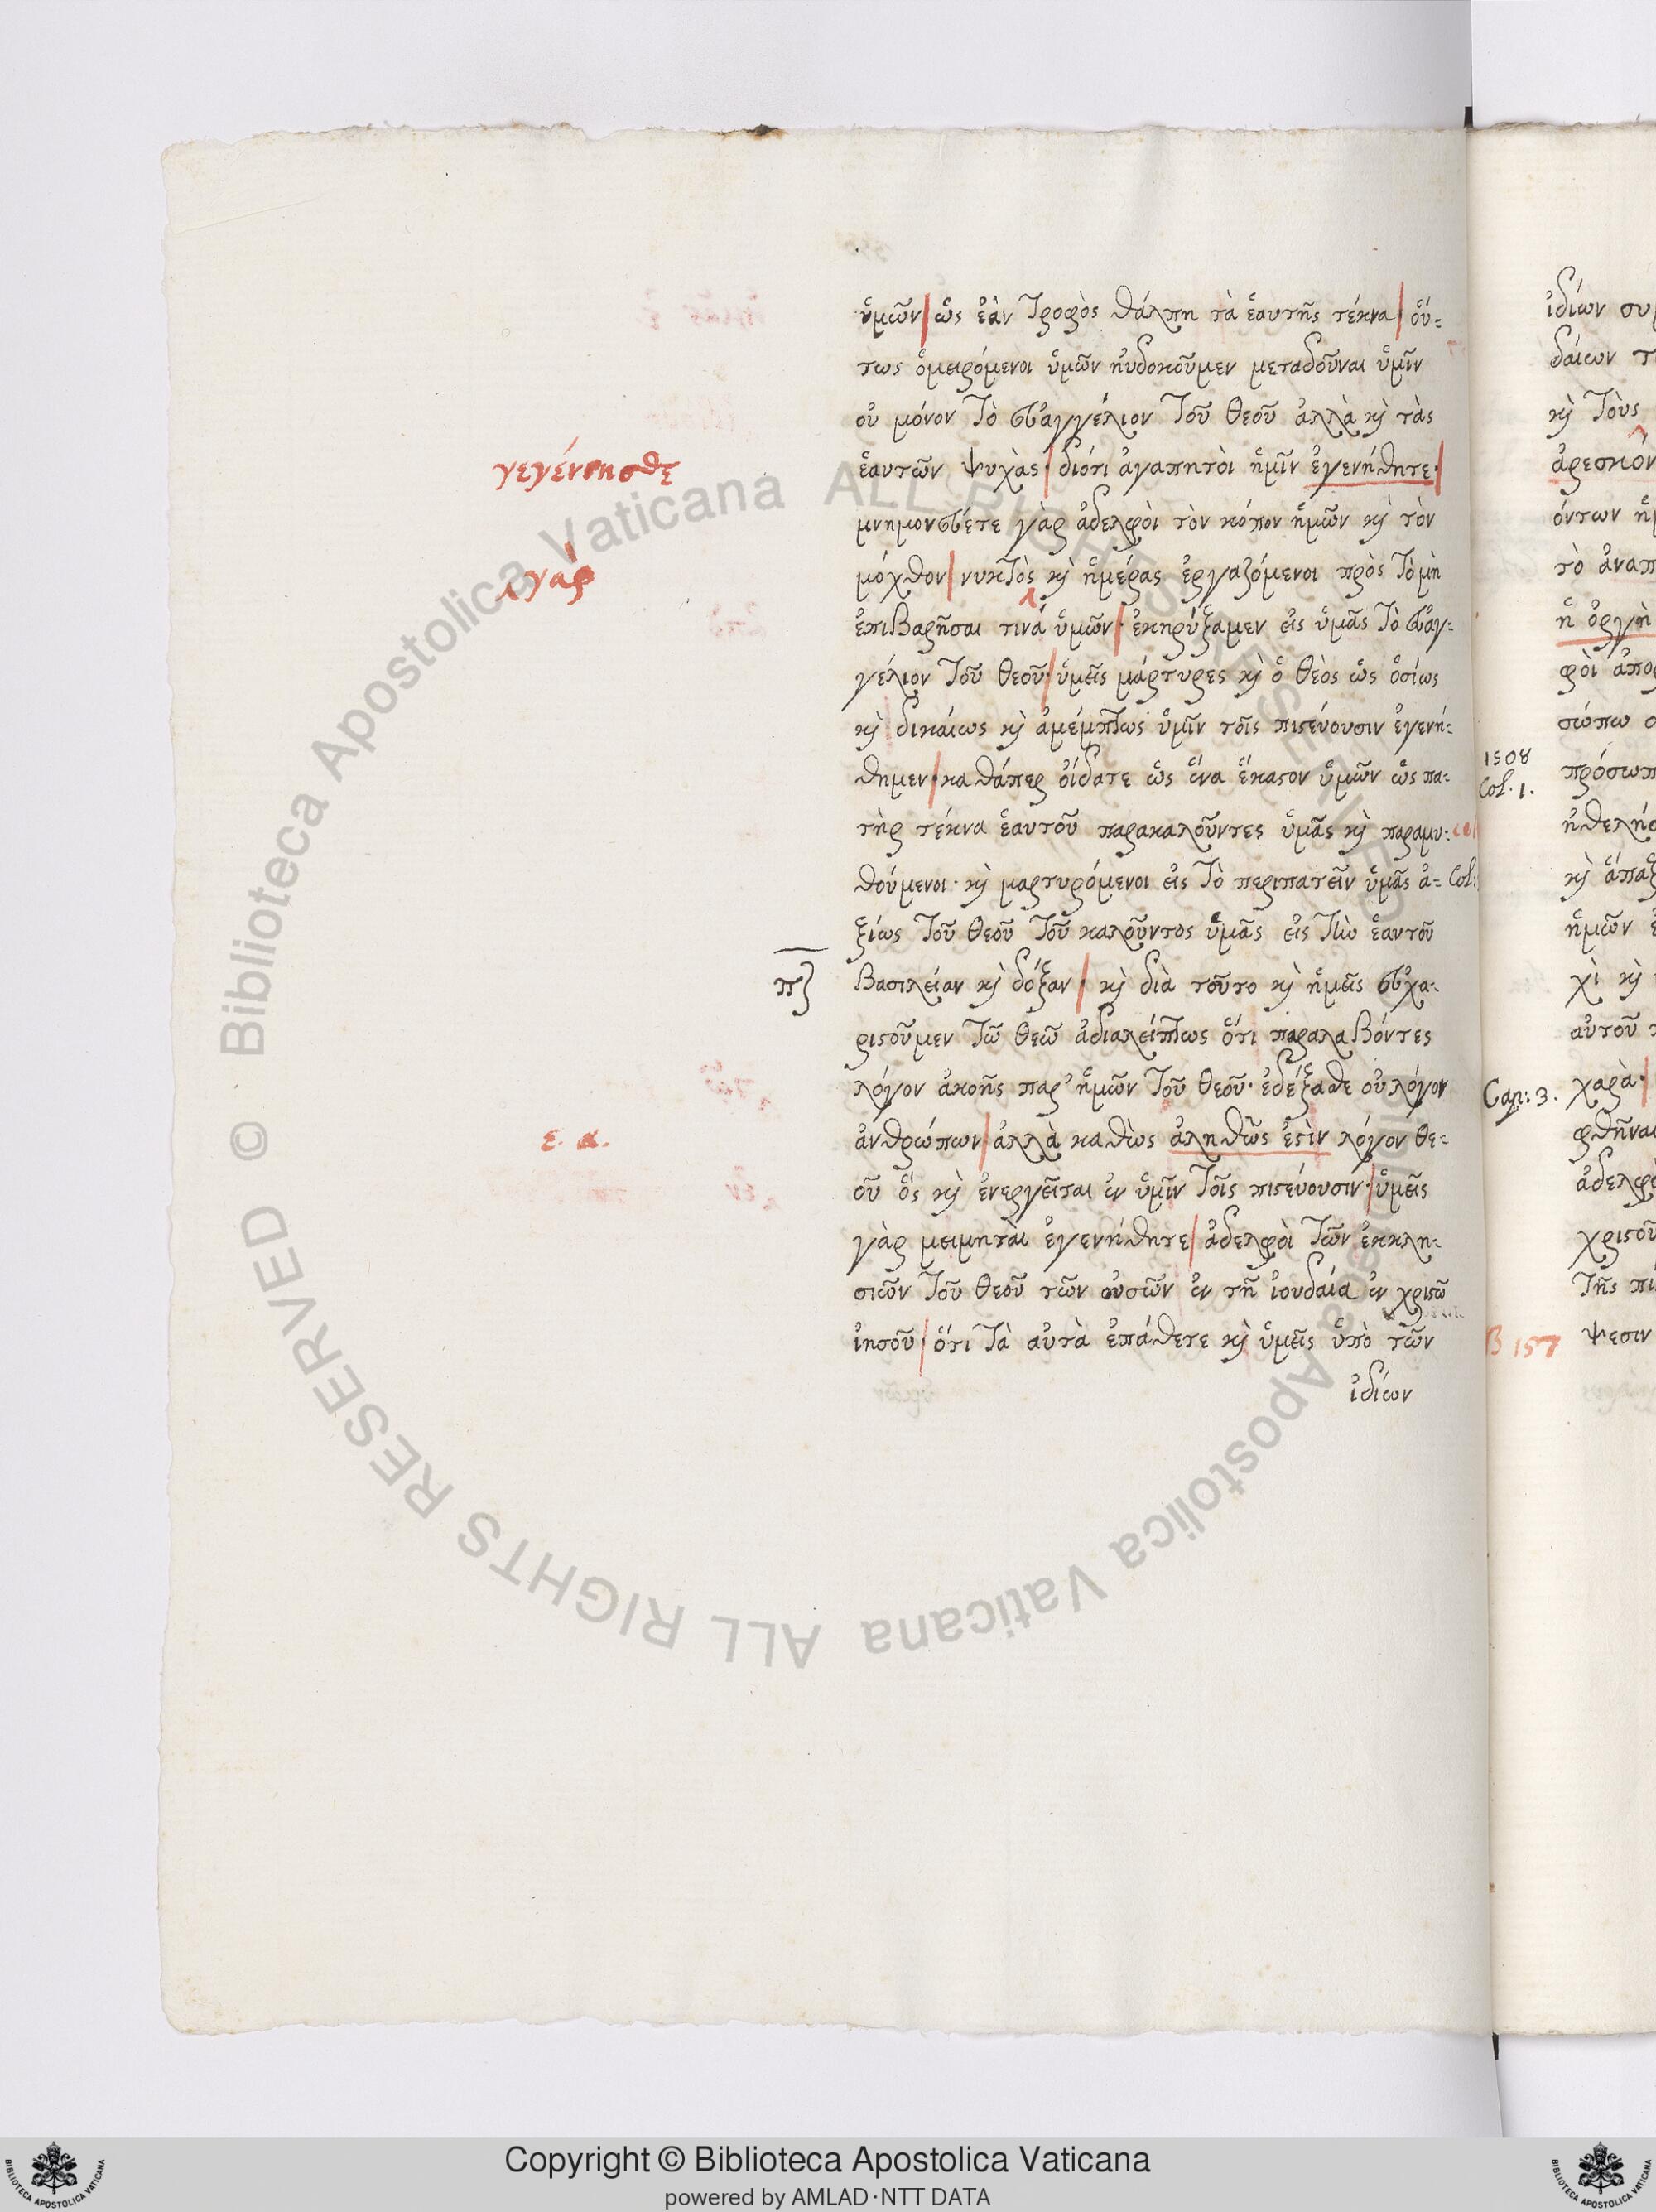 ὑμῶν/ὡς ἐὰν τροφὸς θάλπη τὰ ἑαυτῆς τέκνα/ οὕ-
τως ὁμειρόμενοι ὑμῶν ηὐδοκοῦμεν μεταδοῦναι ὑμῖν
οὐ μόνον τὸ εὐαγγέλιον τοῦ θεοῦ ἀλλὰ κὶ τὰς
γεγένησθε
ἑαυτῶν ψυχὰς·/διότι ἀγαπητοὶ ἡμῖν ἐγενήθητε·/
μνημονεύετε γὰρ ἀδελφοὶ τὸν κόπον ἡμῶν κὶ τὸν
γὰρ
μόχθον/νυκτὸς κὶ ἡμέρας ἐργαζόμενοι πρὸς τὸ μὴ
ἐπιβαρῆσαι τινά ὑμῶν·/ἐκηρύξαμεν εἰς ὑμᾶς τὸ εὐαγ-
γέλιον τοῦ θεοῦ·/ὑμεῖς μάρτυρες κὶ ὁ θεὸς ὡς ὁσίως
κὶ δικαίως κὶ ἀμέμπτως ὑμῖν τοῖς πιστεύουσιν ἐγενή-
θημεν·/καθάπερ οἴδατε ὡς ἕνα ἕκαστον ὑμῶν ὡς πα-
τὴρ τέκνα ἑαυτοῦ παρακαλοῦντες ὑμᾶς κὶ παραμυ-
θούμενοι· κὶ μαρτυρόμενοι εἰς τὸ περιπατεῖν ὑμᾶς ἀ-
Col:
ξίως τοῦ θεοῦ τοῦ καλοῦντος ὑμᾶς εἰς τὴν ἑαυτοῦ
βασιλείαν κὶ δόξαν·/ κὶ διὰ τοῦτο κὶ ἡμεῖς εὐχα-
ριστοῦμεν τῶ θεῶ ἀδιαλείπτως ὅτι παραλαβόντες
λόγον ἀκοῆς παρ' ἡμῶν τοῦ θεοῦ· ἐδέξασθε οὐ λόγον
ε. α.
ἀνθρώπων/ἀλλὰ καθὼς ἀληθῶς ἐστὶν λόγον θε-
οῦ ὃς κὶ ἐνεργεῖται ἐν ὑμῖν τοῖς πιστεύουσιν·/ὑμεῖς
γὰρ μειμηταὶ ἐγενήθητε/ἀδελφοὶ τῶν ἐκκλη-
σιῶν τοῦ θεοῦ τῶν οὐσῶν ἐν τῆ ἰουδαία ἐν χριστῶ
ἰησοῦ/ὅτι τὰ αὐτὰ ἐπάθετε κὶ ὑμεῖς ὑπὸ τῶν
ἰδίων
ἰδίων
δαίων
κὶ τοὺς
ὄντων
ἡ ὀργὴ
1508
Col. 1.
κὶ
ἡμῶν
χὶ κὶ
αὐτοῦ
Cap: 3. χαρὰ·/
τῆς
B 157 ψεσιν
© Biblioteca Apostolica Vaticana ALL RIGHTS RESERVED
Copyright © Biblioteca Apostolica Vaticana
powered by AMLAD·NTT DATA
BIBLIOTECA APOSTOLICA VATICANA
BIBLIOTECA APOSTOLICA VATICANA